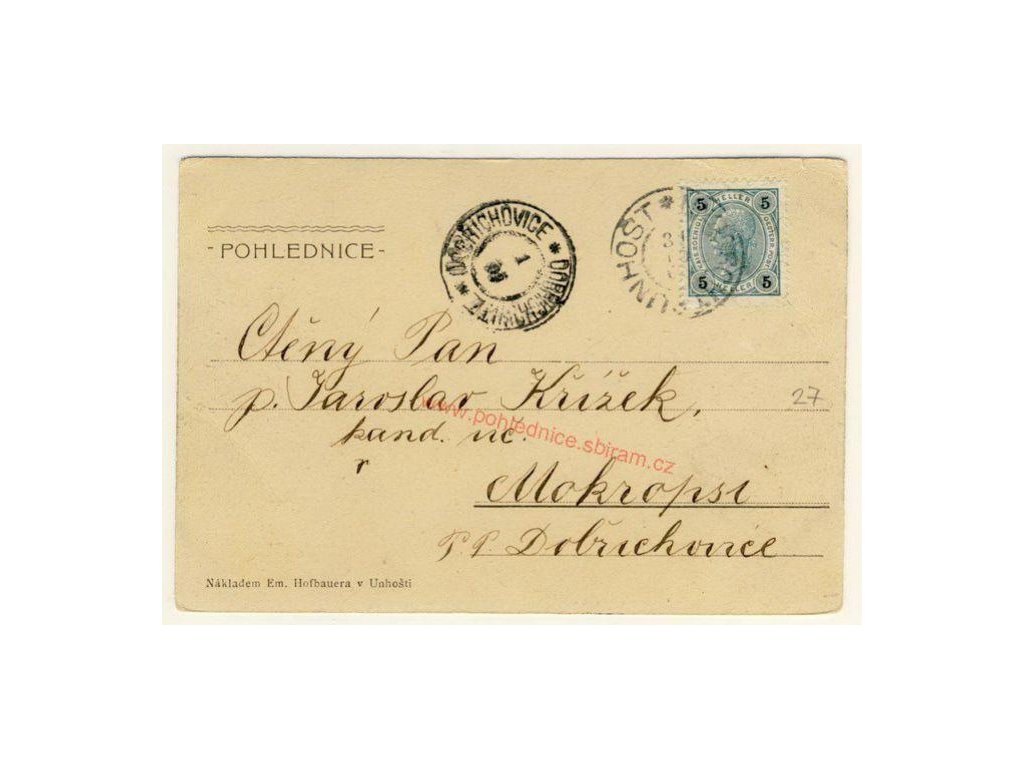 - POHLEDNICE -
DOBŘICHOVICE * DOBŘICHOWITZ *
1
UNHOŠT *
5 HELLER 5
5 HELLER 5
Ctěný Pan
p. Jaroslav Křížek,
27
kand. uč.
v
Mokropsi
P. P. Dobřichovice
www.pohlednice.sbiram.cz
Nákladem Em. Hofbauera v Unhošti